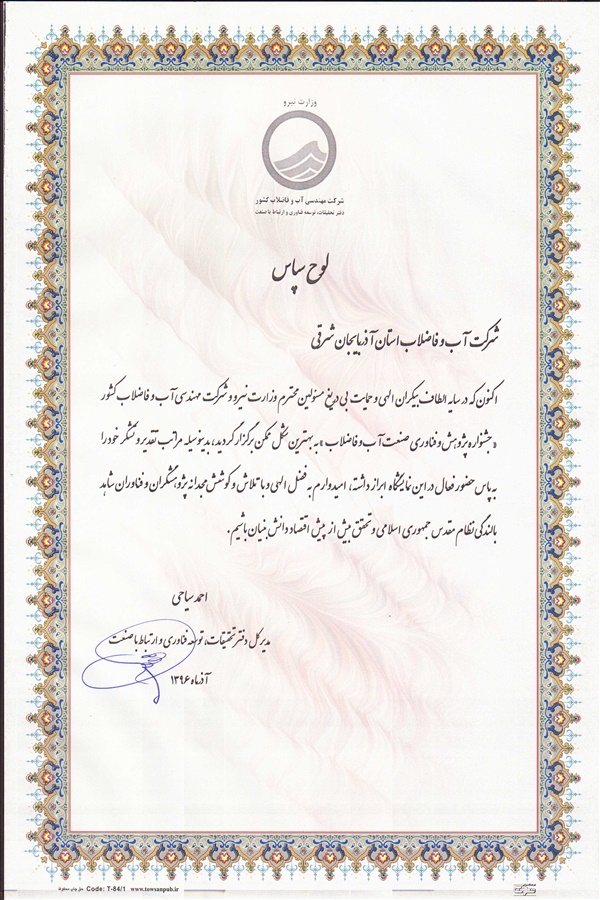 وزارت نیرو
شرکت مهندسی آب و فاضلاب کشور
دفتر تحقیقات، توسعه فناوری و ارتباط با صنعت
لوح سپاس
شرکت آب و فاضلاب استان آذربایجان شرقی
اکنون که در سایه الطاف بیکران الهی و حمایت بی دریغ مسئولین محترم وزارت نیرو و شرکت مهندسی آب و فاضلاب کشور
«جشنواره پژوهش و فناوری صنعت آب و فاضلاب» به بهترین شکل ممکن برگزار گردید، بدینوسیله مراتب تقدیر و تشکر خود را
به پاس حضور فعال در این نمایشگاه ابراز داشته، امیدوارم به فضل الهی و با تلاش و کوشش مجدانه پژوهشگران و فناوران شاهد
بالندگی نظام مقدس جمهوری اسلامی و تحقق بیش از پیش اقتصاد دانش بنیان باشیم.
احمد سیاحی
مدیر کل دفتر تحقیقات، توسعه فناوری و ارتباط با صنعت
آذرماه ۱۳۹۶
حق چاپ محفوظ Code: T-84/1 www.towsanpub.ir